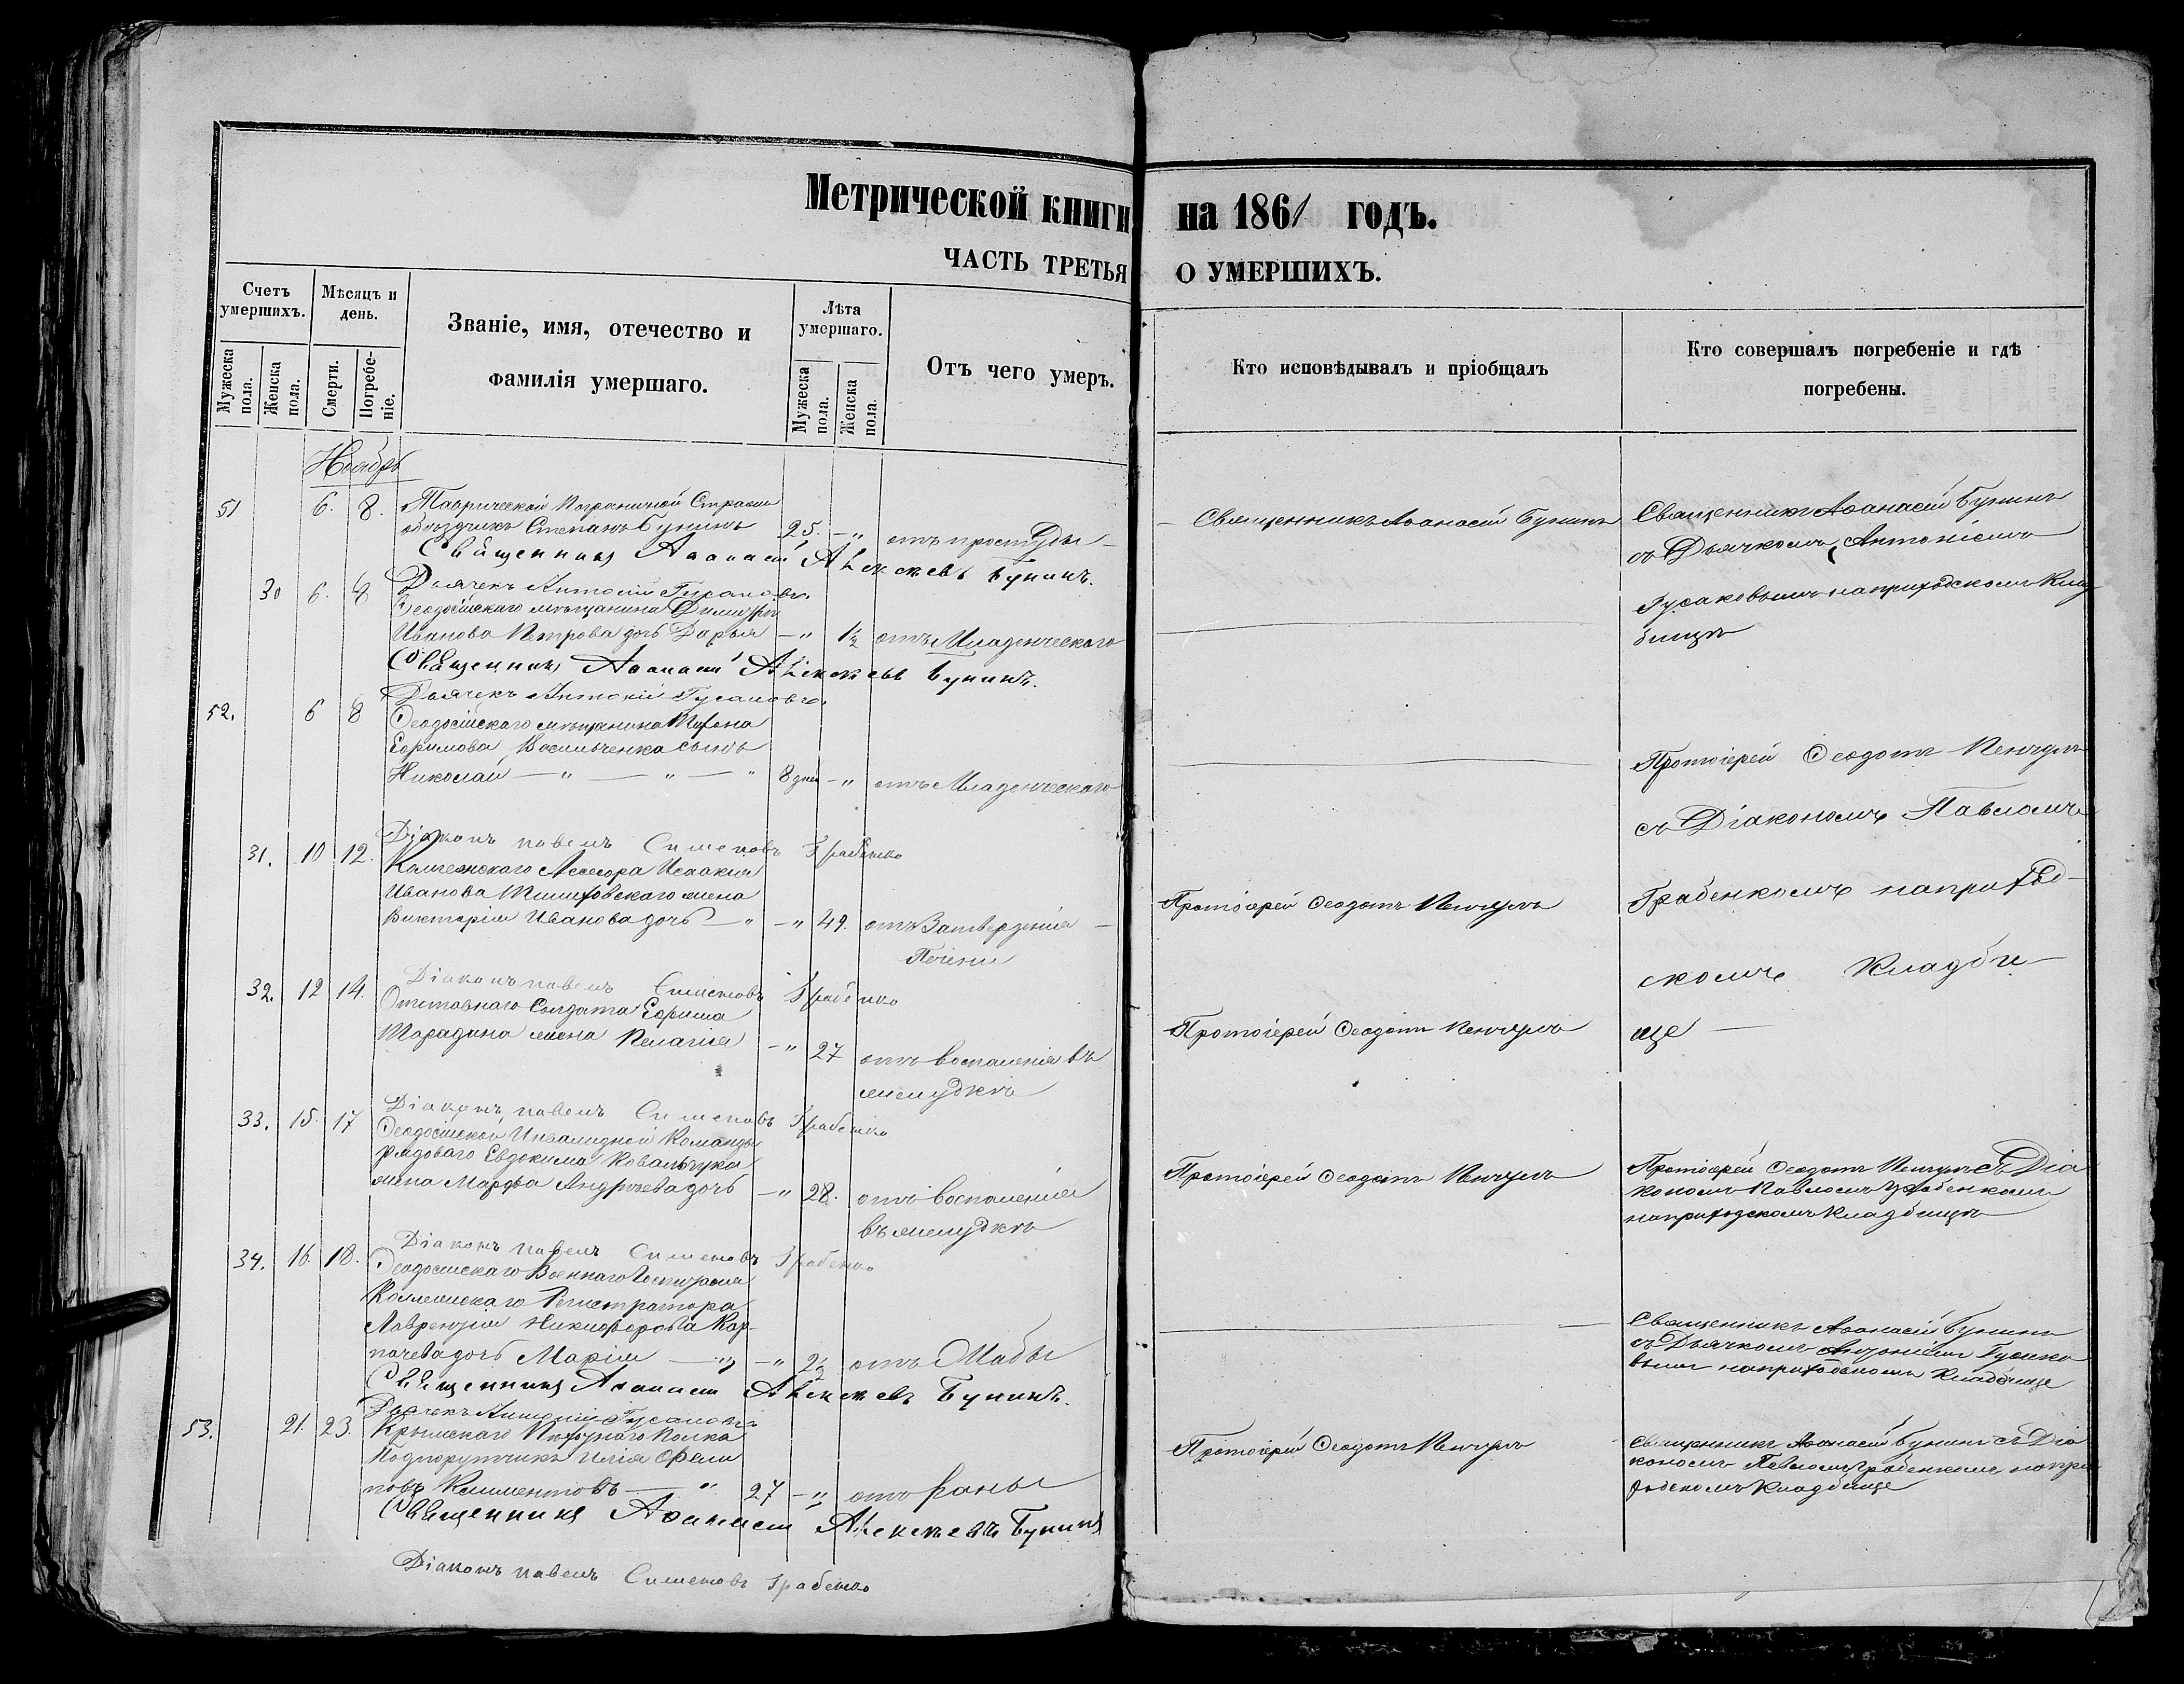 Метрической книги на 1861 годъ.
ЧАСТЬ ТРЕТЬЯ О УМЕРШИХЪ.
Счетъ умершихъ.
Мужеска пола.
Женска пола.
Мѣсяцъ и день.
Смерти.
Погребе-
ніе.
Званіе, имя, отечество и
фамилія умершаго.
Лѣта умершаго.
Мужеска пола.
Женска пола.
Отъ чего умеръ.
Кто исповѣдывалъ и пріобщалъ
Кто совершалъ погребеніе и гдѣ
погребены.
Ноябрь
51 6. 8. Таврической Пограничной Стражи
объѣздчикъ Степанъ Бунинъ 25. — " отъ простуды —
Священникъ Аѳанасій Алексѣевъ Бунинъ.
Священникъ Аѳанасій Бунинъ
Священникъ Аѳанасій Бунинъ
съ Дьячкомъ Антоніемъ
Гусаковымъ на приходскомъ Клад
бищѣ
Дьячекъ Антоній Гусаковъ.
30 6. 8 Ѳеодосійскаго мѣщанина Димитрія
Иванова Петрова дочь Дарья — " 1½ отъ Младенческаго
Священникъ Аѳанасій Алексѣевъ Бунинъ.
Дьячекъ Антоній Гусаковъ.
52. 6 8 Ѳеодосійскаго мѣщанина
Ефимова Васильченка сынъ
Николай — " — " — " 8 дней — " отъ Младенческаго
Протоіерей Ѳеодотъ
съ Діакономъ Павломъ
Грабенкомъ на приход-
скомъ Кладби-
ще —
Діаконъ Павелъ Симеоновъ Грабенко
31. 10 12. Коллежскаго Ассесора Исаакія
Иванова жена
Викторія Иванова дочь — " — " 49. отъ Затвердѣнія —
Печени
Протоіерей Ѳеодотъ
Діаконъ Павелъ Симеоновъ Грабенко
32. 12 14. Отставнаго Солдата Ефима
жена Пелагія — " 27 отъ воспаленія въ
желудкѣ
Протоіерей Ѳеодотъ
Діаконъ Павелъ Симеоновъ Грабенко
33. 15. 17 Ѳеодосійской Инвалидной Команды
рядоваго Евдокима Ковальчука
жена Марфа Андреева дочь — " 28. отъ воспаленія
въ желудкѣ
Протоіерей Ѳеодотъ
Протоіерей Ѳеодотъ съ Діа
кономъ Павломъ Грабенкомъ
на приходскомъ Кладбищѣ
Діаконъ Павелъ Симеоновъ Грабенко
34. 16. 18. Ѳеодосійскаго Военнаго Госпиталя
Коллежскаго Регистратора
Лаврентія Никифорова Кар-
пачева дочь Марія — " — " 2½ отъ Жабы
Священникъ Аѳанасій Алексѣевъ Бунинъ.
Священникъ Аѳанасій Бунинъ
съ Дьячкомъ Антоніемъ Гусако
вымъ на приходскомъ Кладбище
Дьячекъ Антоній Гусаковъ
53. 21. 23. Крымскаго Пѣхотнаго Полка
Подпоручикъ Илія Фили
повъ Климентовъ — " 27 — " отъ раны
Священникъ Аѳанасій Алексѣевъ Бунинъ
Протоіерей Ѳеодотъ
Священникъ Аѳанасій Бунинъ съ Діа
кономъ Павломъ Грабенкомъ на при
ходскомъ Кладбище
Діаконъ Павелъ Симеоновъ Грабенко